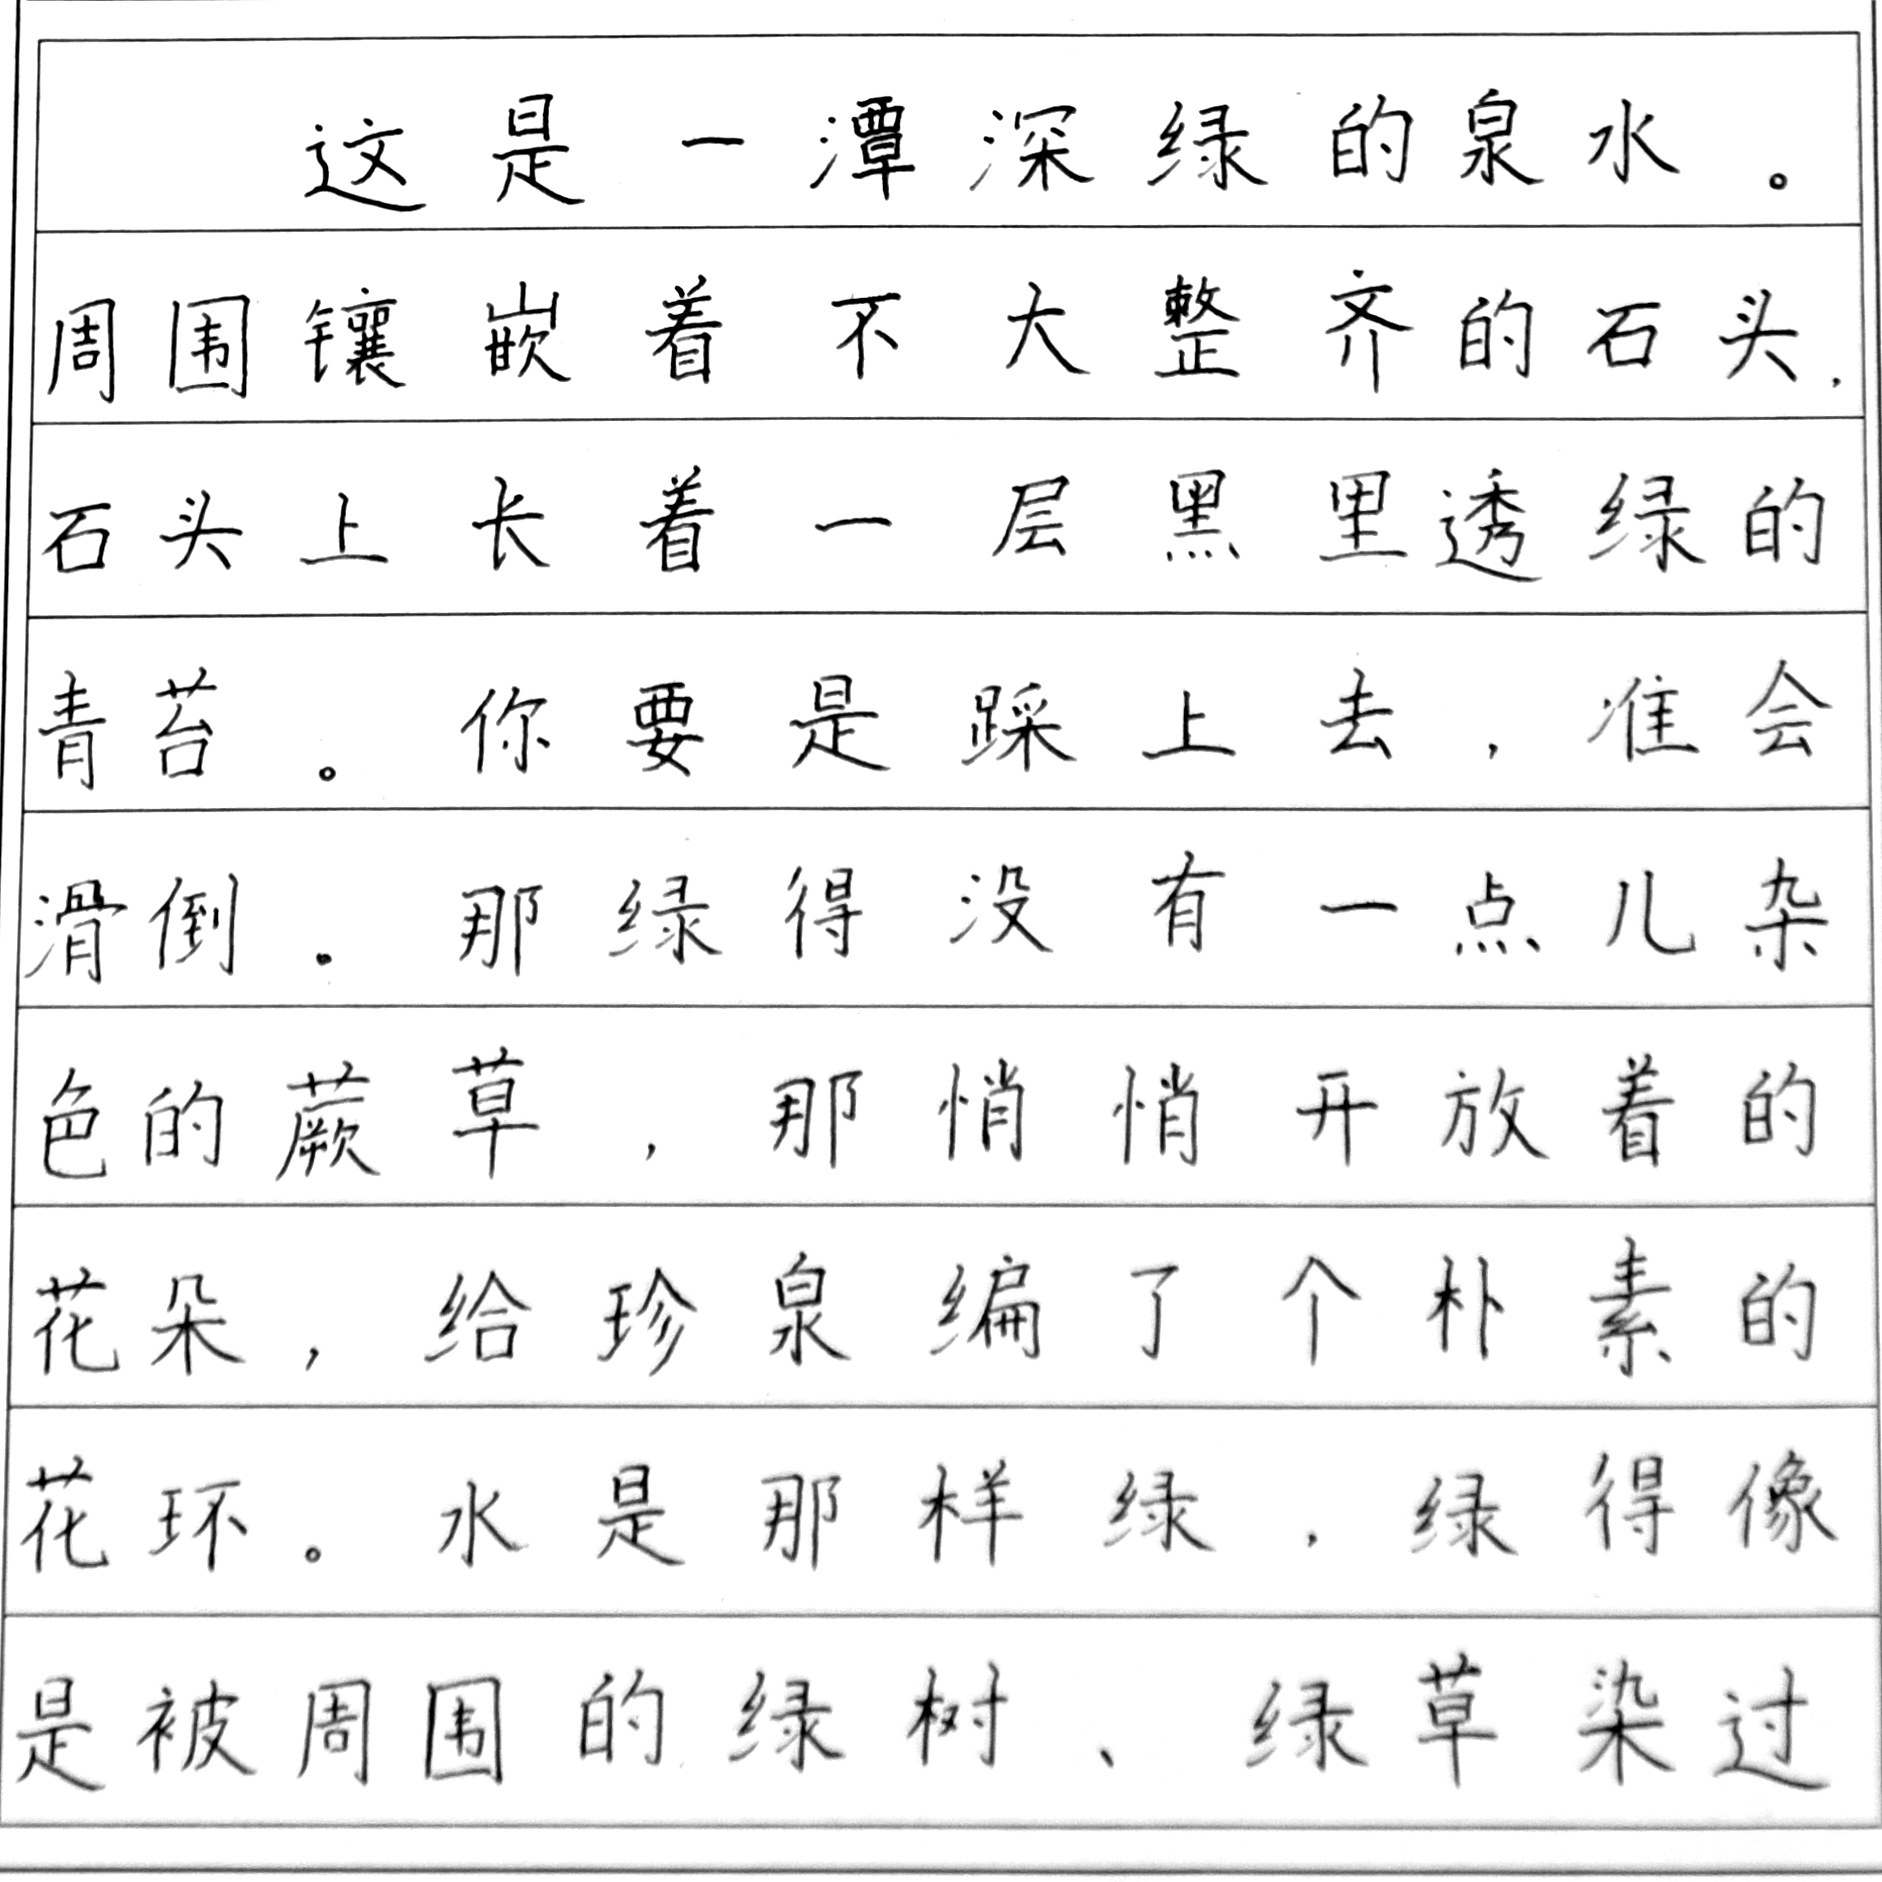 这是一潭深绿的泉水。
周围镶嵌着不大整齐的石头，
石头上长着一层黑里透绿的
青苔。你要是踩上去，准会
滑倒。那绿得没有一点儿杂
色的蕨草，那悄悄开放着的
花朵，给珍泉编了个朴素的
花环。水是那样绿，绿得像
是被周围的绿树、绿草染过